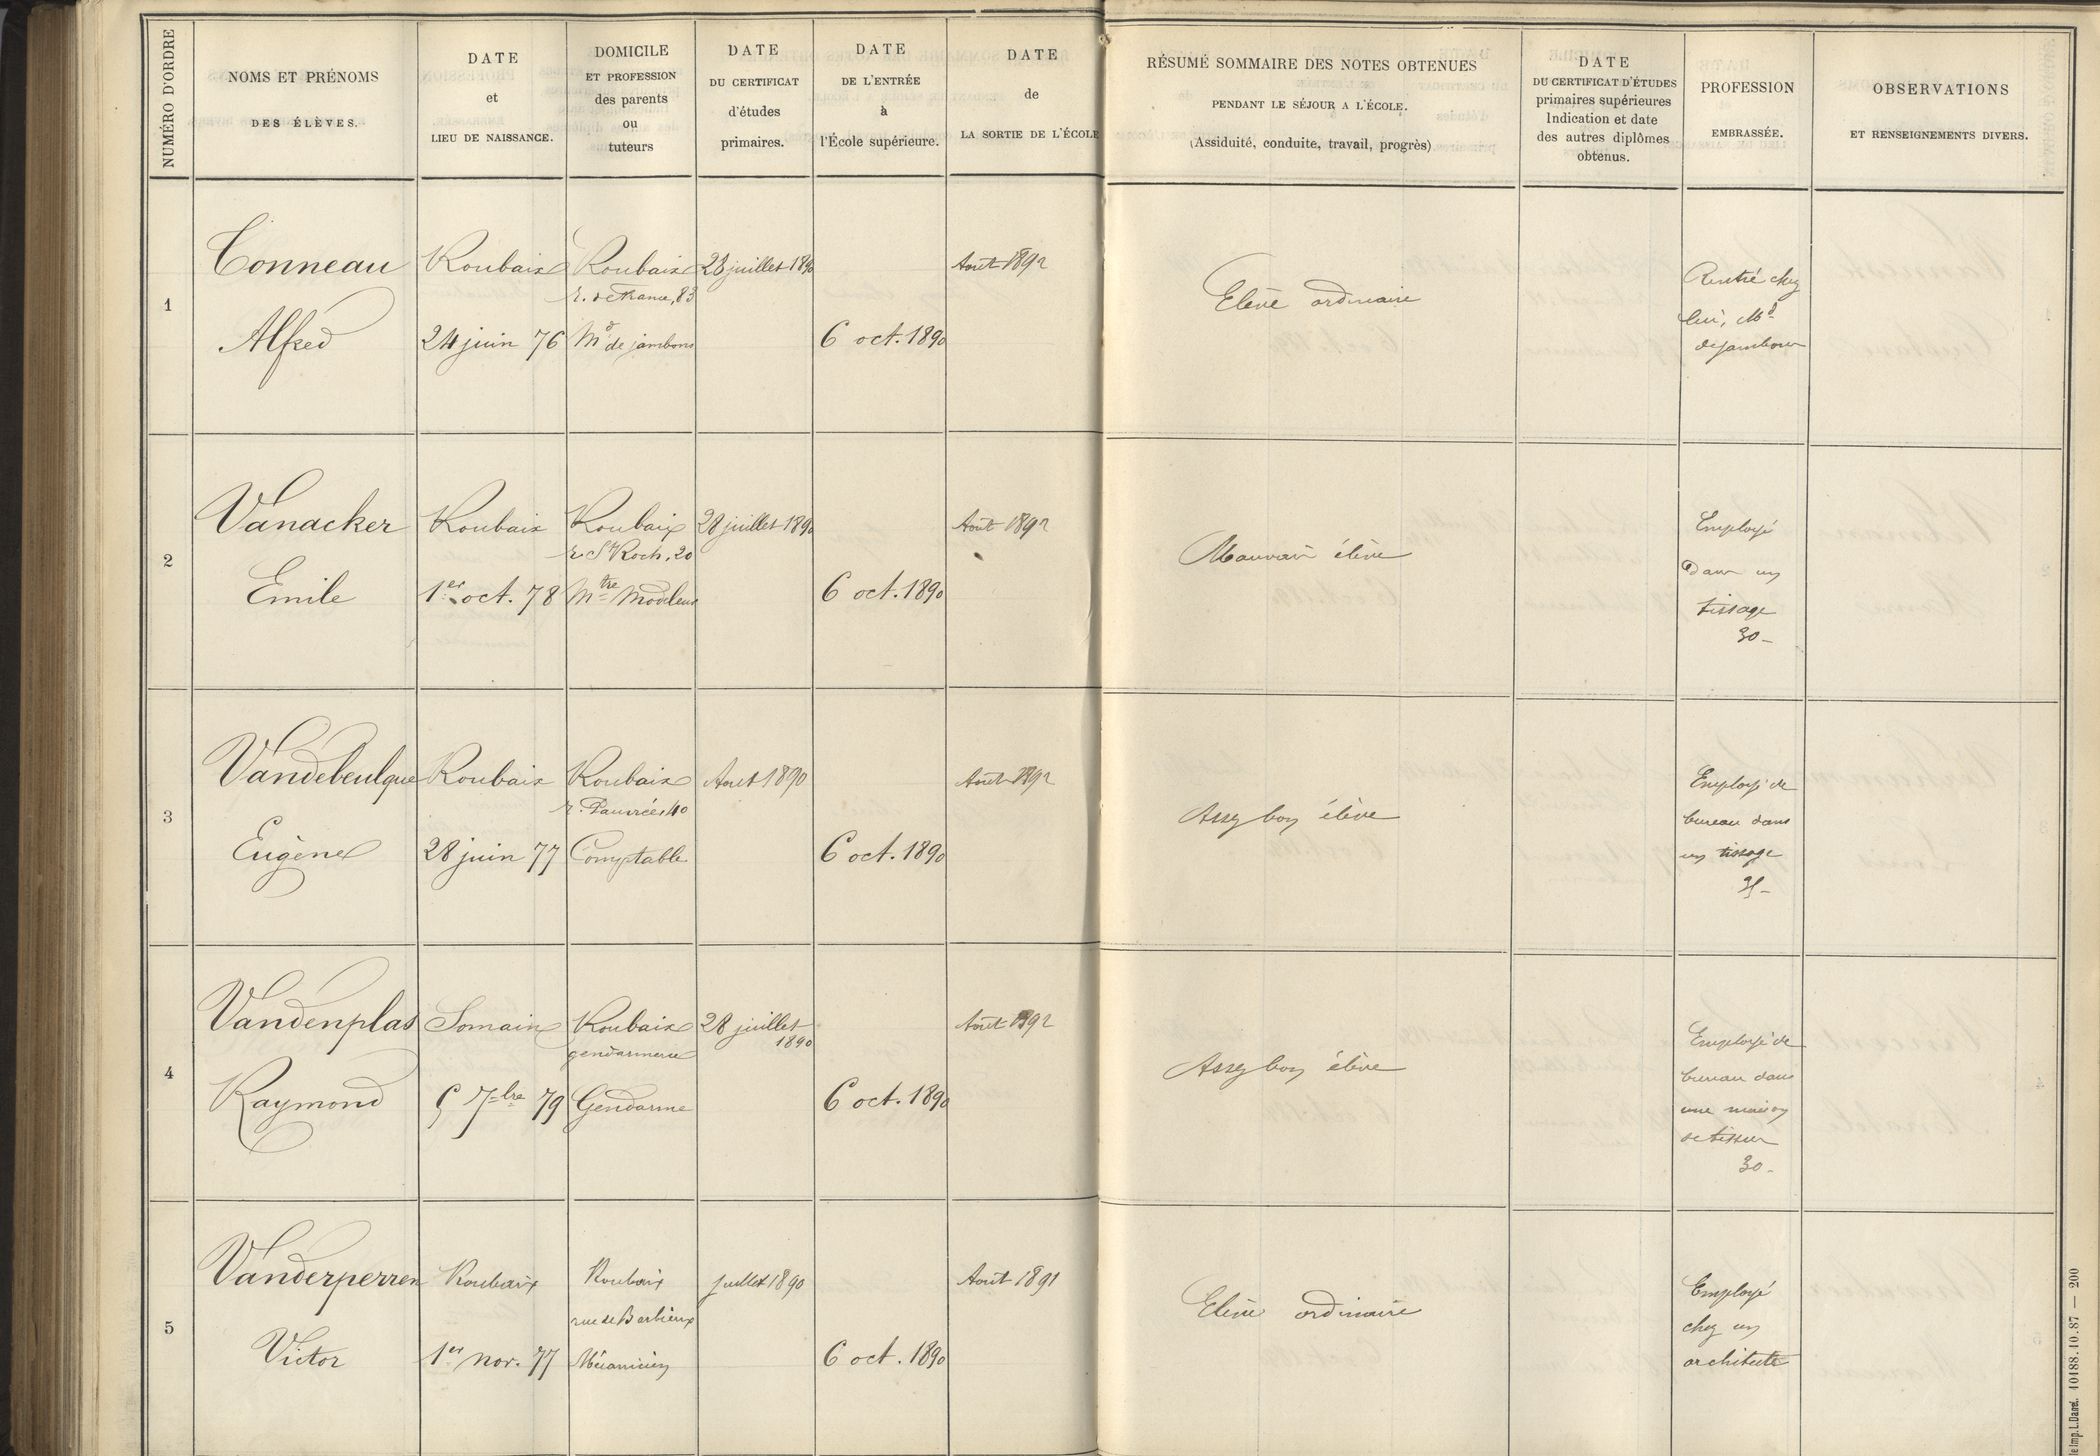 NUMÉRO D'ORDRE
NOMS ET PRÉNOMS
DES ÉLÈVES.
DATE
et
LIEU DE NAISSANCE.
DOMICILE
ET PROFESSION
des parents
ou
tuteurs
DATE
DU CERTIFICAT
d'études
primaires.
DATE
DE L'ENTRÉE
à
l'École supérieure.
DATE
de
LA SORTIE DE L'ÉCOLE
RÉSUMÉ SOMMAIRE DES NOTES OBTENUES
PENDANT LE SÉJOUR A L'ÉCOLE.
(Assiduité, conduite, travail, progrès)
DATE
DU CERTIFICAT D'ÉTUDES
primaires supérieures
Indication et date
des autres diplômes
obtenus.
PROFESSION
EMBRASSÉE.
OBSERVATIONS
ET RENSEIGNEMENTS DIVERS.
1
Tonneau
Alfred
Roubaix
24 juin 76
Roubaix
r. de France, 83
Md de jambons
28 juillet 1890
6 oct. 1890
Août 1892
Elève ordinaire
Rentré chez
lui, Md
de jambons
2
Vanacker
Emile
Roubaix
1er oct. 78
Roubaix
r. St Roch, 20
Mtre Modeleur
28 juillet 1890
6 oct. 1890
Août 1892
Mauvais élève
Employé
dans un
tissage
30 -
3
Vandebeulque
Eugène
Roubaix
28 juin 77
Roubaix
r. Pauvrée, 40
Comptable
Août 1890
6 oct. 1890
Août 1892
Assez bon élève
Employé de
bureau dans
un tissage
35 -
4
Vandenplas
Raymond
Somain
5 7bre 79
Roubaix
gendarmerie
Gendarme
28 juillet
1890
6 oct. 1890
Août 1892
Assez bon élève
Employé de
bureau dans
une maison
de tissus
30 -
5
Vanderperren
Victor
Roubaix
1er nov. 77
Roubaix
rue de Barbieux
Mécanicien
juillet 1890
6 oct. 1890
Août 1891
Elève ordinaire
Employé
chez un
architecte
Imp. L. Danel. 40188.10.87 — 200